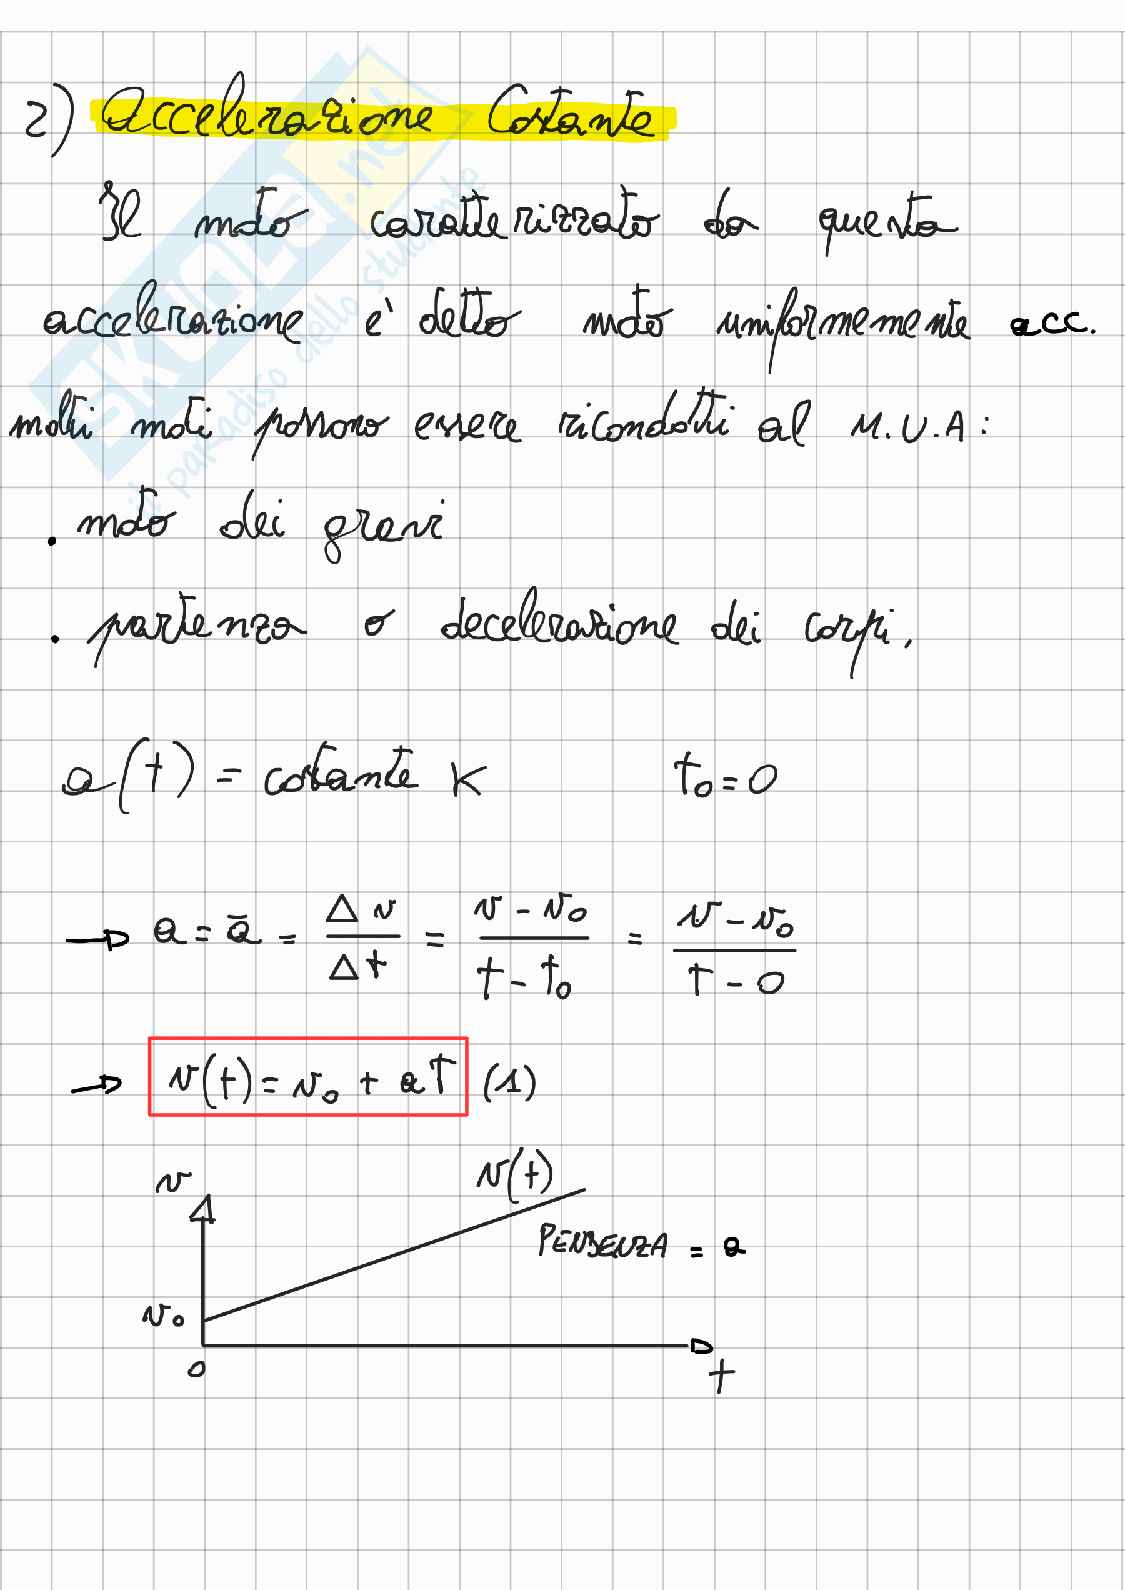 2) Accelerazione Costante
Il moto caratterizzato da questa
accelerazione e' detto moto uniformemente acc.
molti moti possono essere ricondotti al M.U.A:
. moto dei gravi
. partenza o decelerazione dei corpi.
a(t) = costante K t₀=0
→ a = a̅ = Δv/Δt = v-v₀/t-t₀ = v-v₀/T-0
→ v(t) = v₀ + aT (1)
v(t)
v
PENDENZA = a
v₀
0
t
SKUOLA.net
il paradiso dello studente